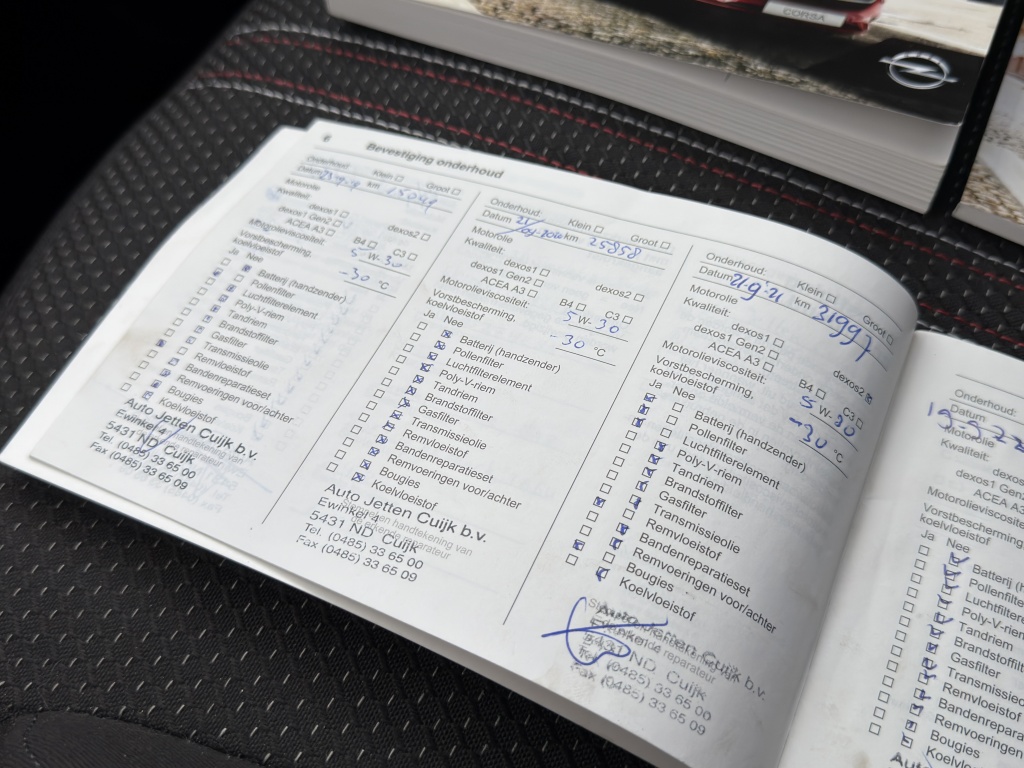 CORSA
6 Bevestiging onderhoud
Onderhoud: Klein Groot
Datum km 15049
Motorolie
Kwaliteit:
dexos1 dexos2
dexos1 Gen2
ACEA A3 B4 C3
Motorolieviscositeit: 5 W- 30
Vorstbescherming,
koelvloeistof -30 °C
Ja Nee
Batterij (handzender)
Pollenfilter
Luchtfilterelement
Poly-V-riem
Tandriem
Brandstoffilter
Gasfilter
Transmissieolie
Remvloeistof
Bandenreparatieset
Remvoeringen voor/achter
Bougies
Koelvloeistof
Auto Jetten Cuijk b.v.
Ewinkel 4
5431 ND Cuijk
Tel. (0485) 33 65 00
Fax (0485) 33 65 09
Onderhoud: Klein Groot
Datum km 25858
Motorolie
Kwaliteit:
dexos1 dexos2
dexos1 Gen2
ACEA A3 B4 C3
Motorolieviscositeit: 5 W- 30
Vorstbescherming,
koelvloeistof -30 °C
Ja Nee
Batterij (handzender)
Pollenfilter
Luchtfilterelement
Poly-V-riem
Tandriem
Brandstoffilter
Gasfilter
Transmissieolie
Remvloeistof
Bandenreparatieset
Remvoeringen voor/achter
Bougies
Koelvloeistof
Auto Jetten Cuijk b.v.
Ewinkel 4
5431 ND Cuijk
Tel. (0485) 33 65 00
Fax (0485) 33 65 09
Onderhoud: Klein Groot
Datum 21.9.21 km 31997
Motorolie
Kwaliteit:
dexos1 dexos2
dexos1 Gen2
ACEA A3 B4 C3
Motorolieviscositeit: 5 W- 30
Vorstbescherming,
koelvloeistof -30 °C
Ja Nee
Batterij (handzender)
Pollenfilter
Luchtfilterelement
Poly-V-riem
Tandriem
Brandstoffilter
Gasfilter
Transmissieolie
Remvloeistof
Bandenreparatieset
Remvoeringen voor/achter
Bougies
Koelvloeistof
Auto Jetten Cuijk b.v.
Ewinkel 4
5431 ND Cuijk
Tel. (0485) 33 65 00
Fax (0485) 33 65 09
Onderhoud:
Datum
Motorolie
Kwaliteit:
dexos1
dexos1 Gen2
ACEA A3
Motorolieviscositeit:
Vorstbescherming,
koelvloeistof
Ja Nee
Batterij (h
Pollenfilter
Luchtfiltere
Poly-V-riem
Tandriem
Brandstoffilte
Gasfilter
Transmissieo
Remvloeistof
Bandenrepara
Remvoeringen
Bougies
Koelvloeis